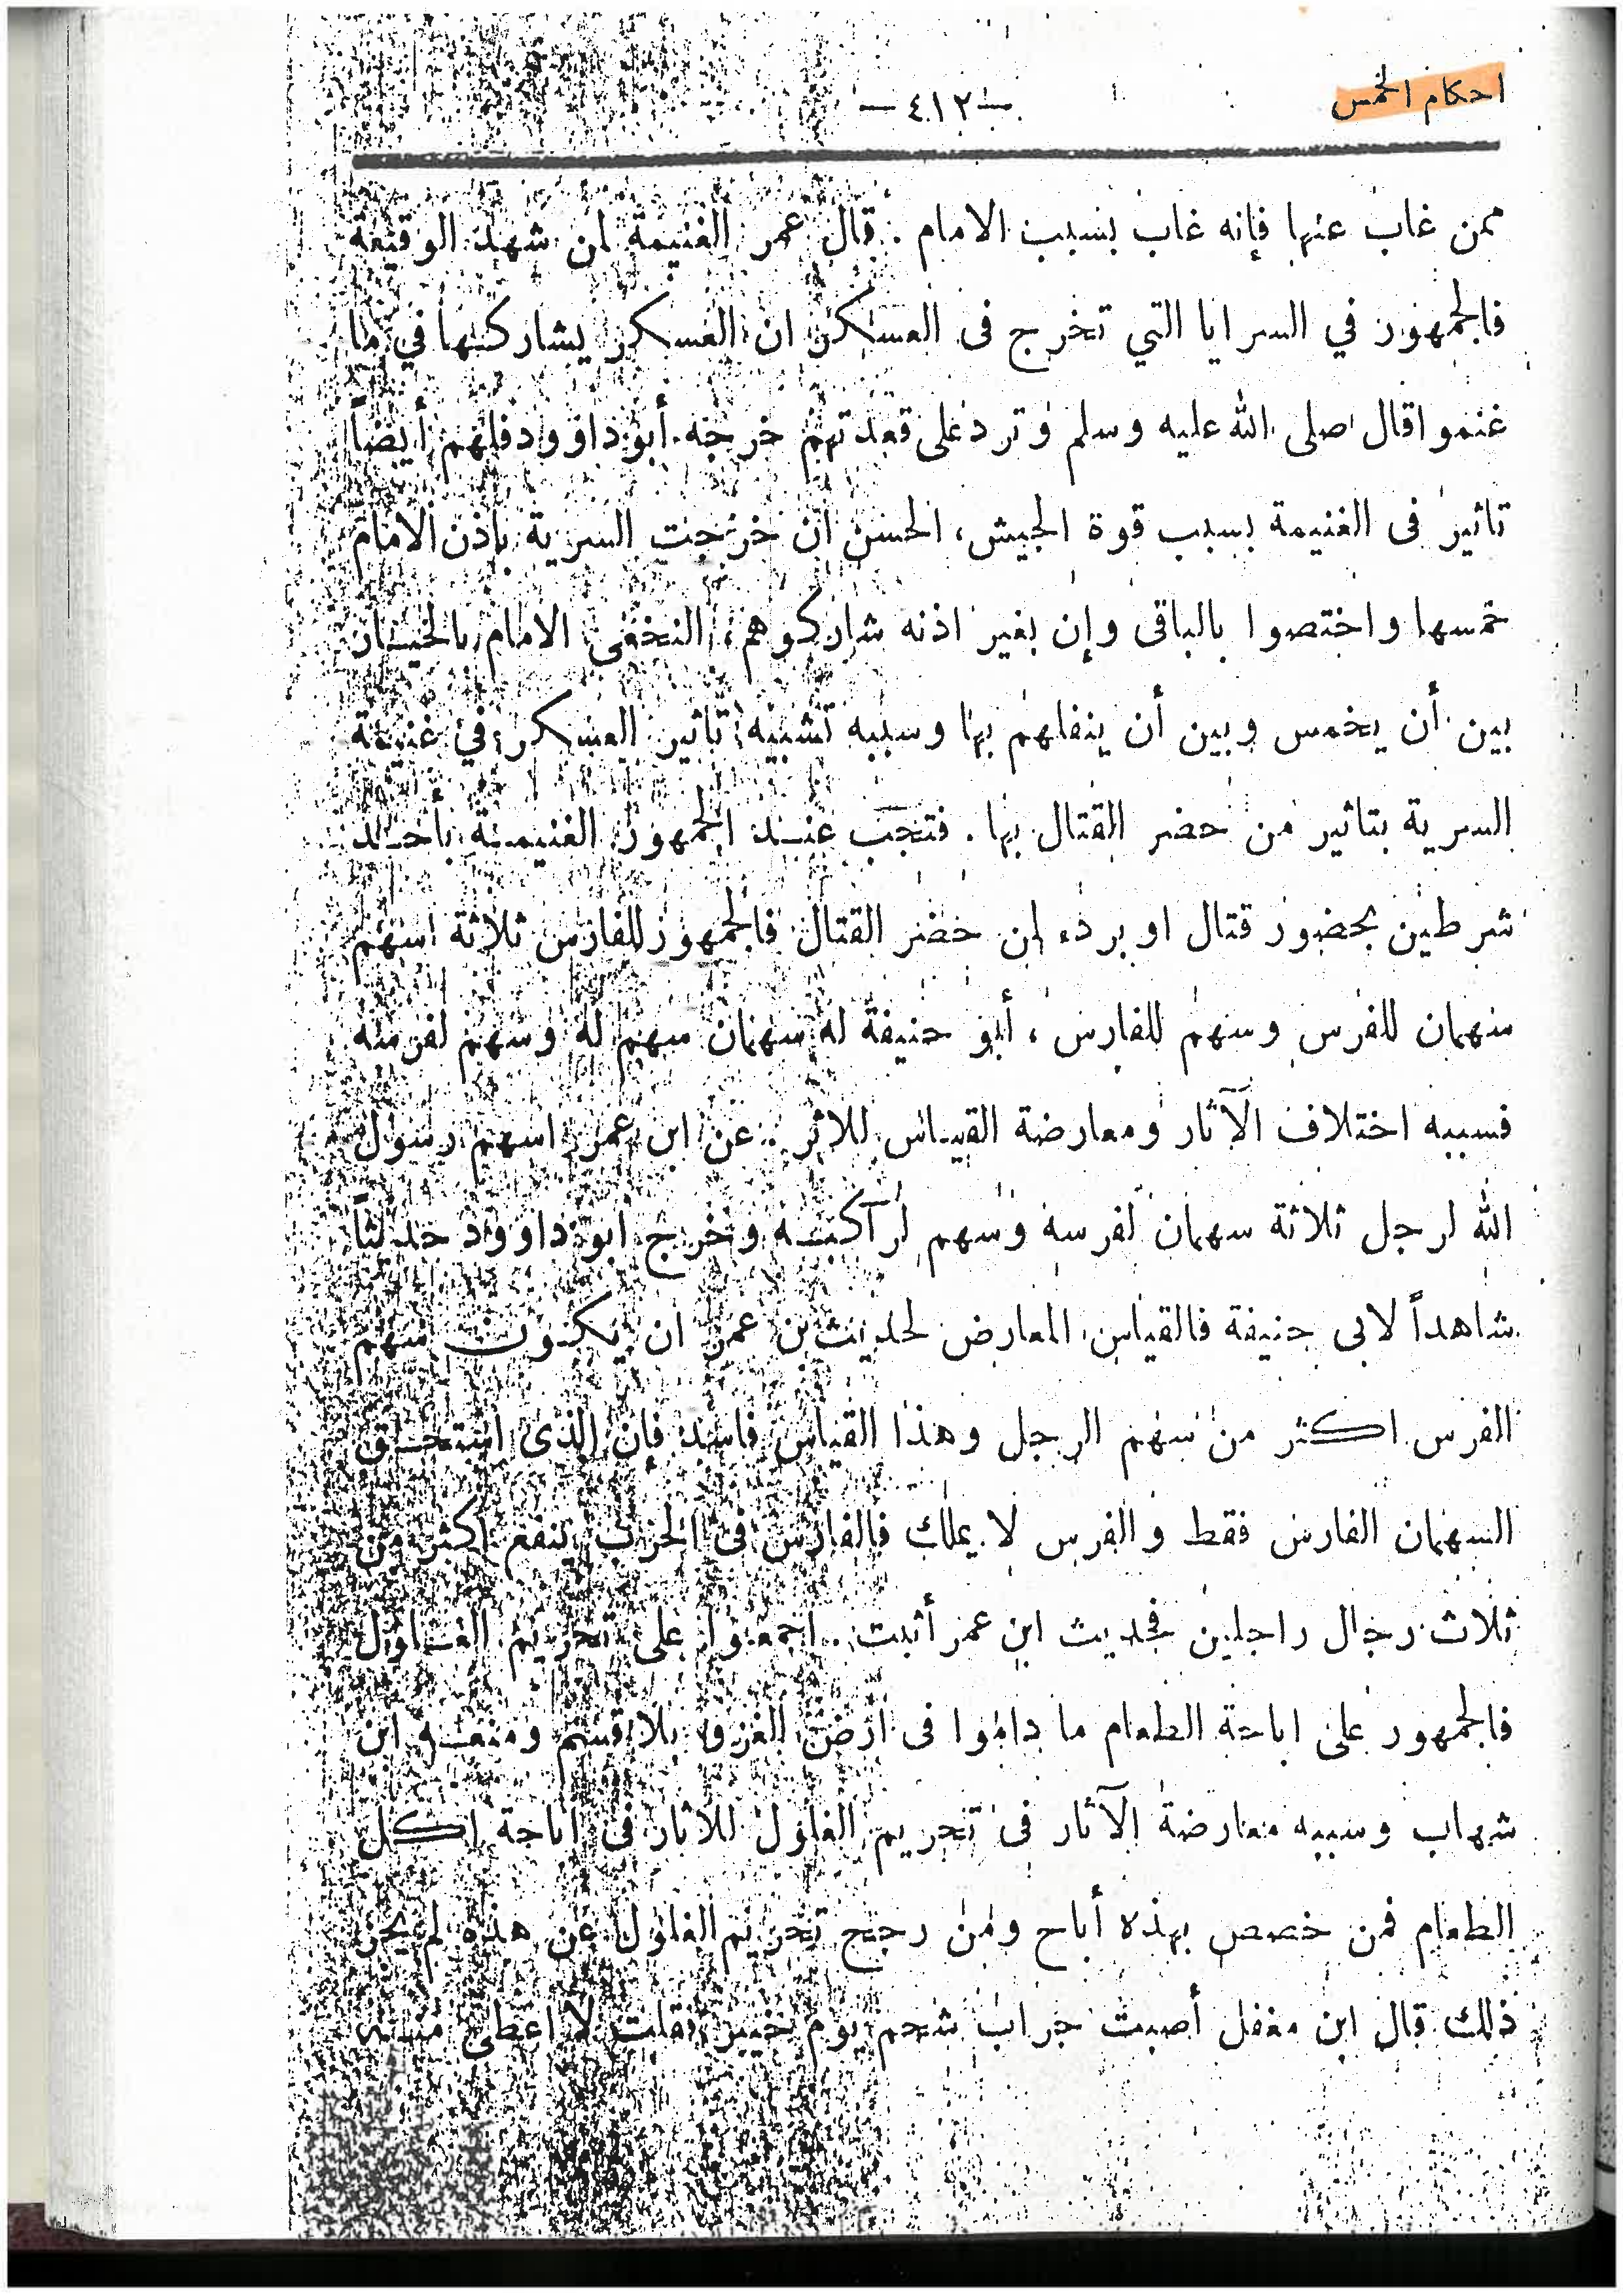 احكام الخمس
— ٤١٢ —
ممن غاب عنها فإنه غاب بسبب الامام . قال عمر الغنيمة لمن شهد الوقيعة
فالجمهور في السرايا التي تخرج فى العسكر ان العسكر يشاركها في ما
غنموا قال صلى الله عليه وسلم وترد على قعدتهم خرجه أبو داوود فلهم أيضاً
تاثير فى الغنيمة بسبب قوة الجيش ، الحسن ان خرجت السرية باذن الامام
خمسها واختصوا بالباقى وإن بغير اذنه شاركوهم ، النخعى الامام بالخيار
بين أن يخمس وبين أن ينفلهم بها وسببه تشبيه تاثير العسكر في غنيمة
السرية بتاثير من حضر القتال بها . فتجب عند الجمهور الغنيمة بأحد
شرطين بحضور قتال او برد، لمن حضر القتال فالجمهور للفارس ثلاثة اسهم
سهمان للفرس وسهم للفارس ، أبو حنيفة له سهمان سهم له وسهم لفرسه
فسببه اختلاف الآثار ومعارضة القياس للاثر . عن ابن عمر اسهم رسول
الله لرجل ثلاثة سهمان لفرسه وسهم لراكبه وخرج ابو داوود حديثاً
شاهداً لابى حنيفة فالقياس المعارض لحديث بن عمر ان يكون سهم
الفرس اكثر من سهم الرجل وهذا القياس فاسد فإن الذى استحق
السهمان الفارس فقط والفرس لا يملك فالفارس فى الحرب ينفع اكثر من
ثلاث رجال راجلين فحديث ابن عمر أثبت . اجمعوا على تحريم الغلول
فالجمهور على اباحة الطعام ما داموا فى أرض الغزو بلا قسم ومنعه ابن
شهاب وسببه معارضة الآثار فى تحريم الغلول للاثار فى اباحة اكل
الطعام فمن خصص بهذه أباح ومن رجح تحريم الغلول عن هذه لم يجز
ذلك قال ابن مغفل أصبت جراب شحم يوم خيبر فقلت لا اعطى منه